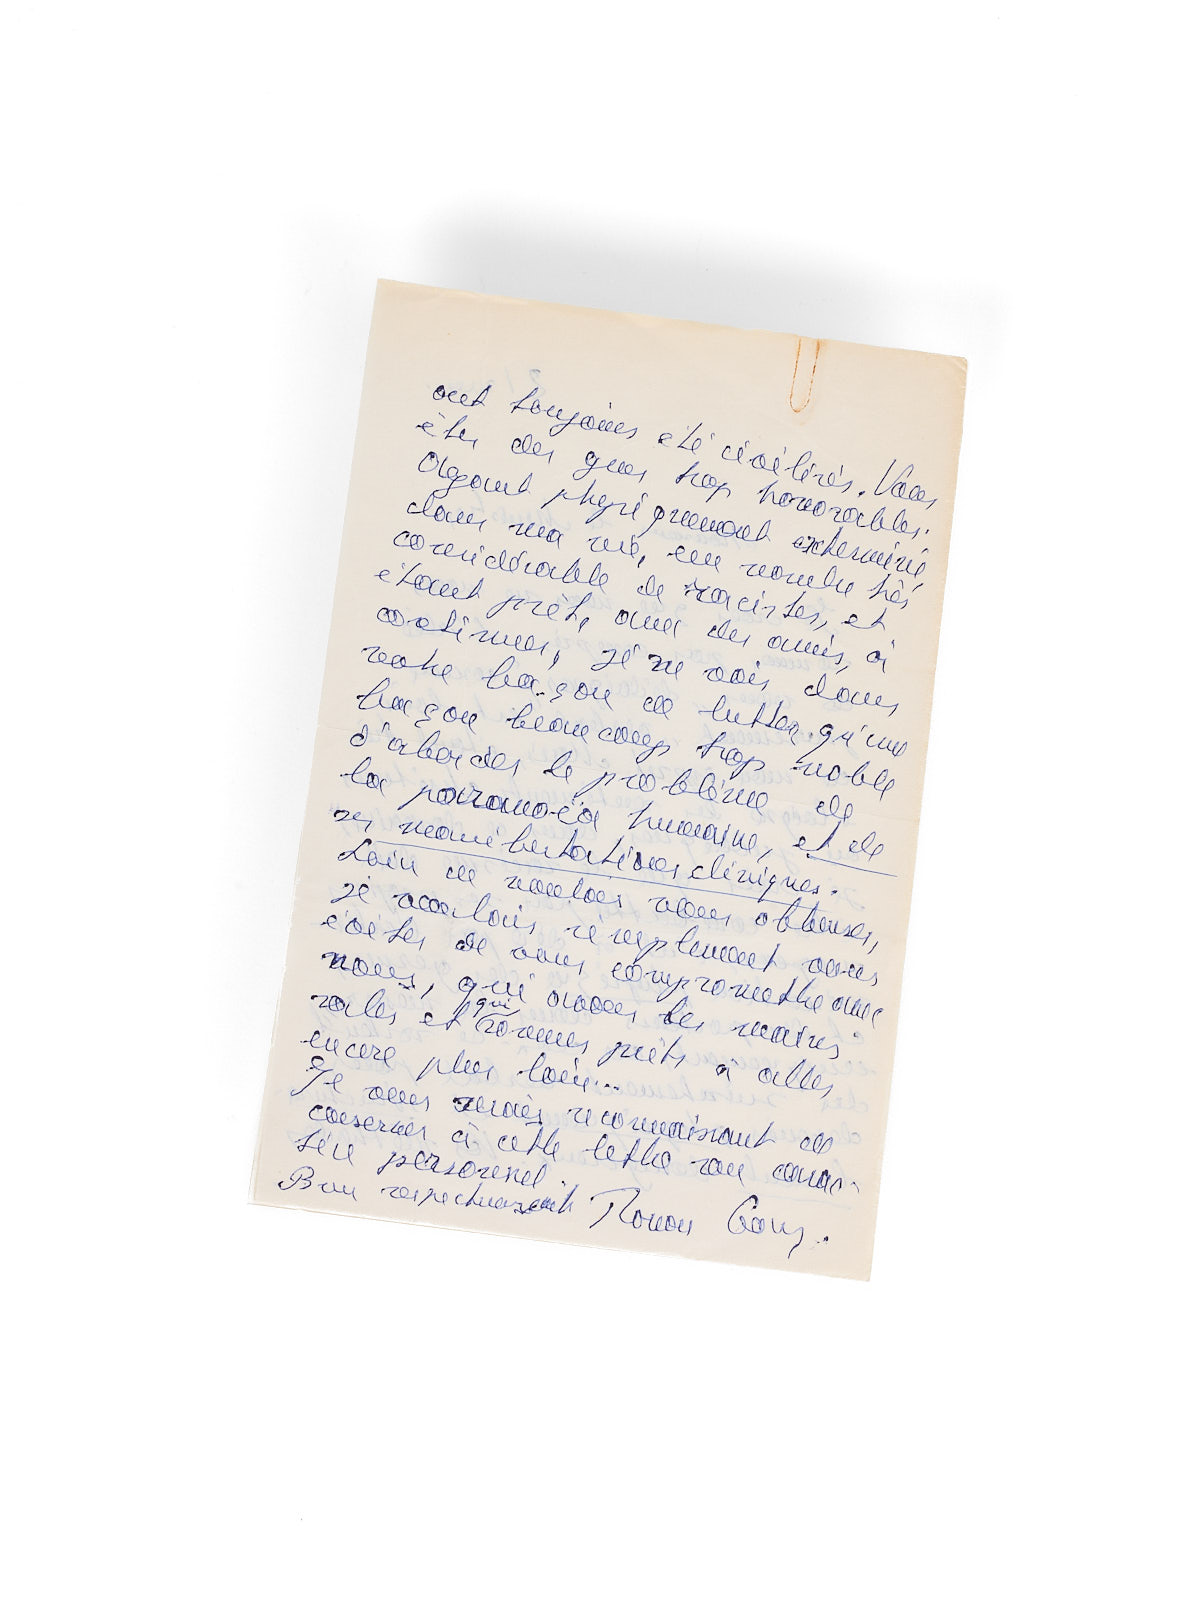 ont toujours été civilisés. Vous
êtes des gens trop honorables.
Ayant physiquement exterminé
dans ma vie, un nombre très
considérable de racistes, et
étant prêt, avec des amis, à
continuer, je ne vois dans
votre façon de lutter qu'une
façon beaucoup trop noble
d'aborder le problème de
la paranoïa humaine, et de
ses manifestations cliniques.
Loin de vouloir vous offenser,
je voulais simplement vous
éviter de vous compromettre avec
nous, qui avons les mains
sales et qui sommes prêts à aller
encore plus loin...
Je vous serais reconnaissant de
conserver à cette lettre son carac-
tère personnel.
Bien respectueusement Romain Gary.